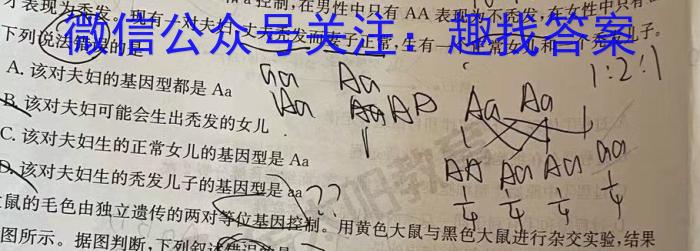 才表现为秃发，现有一对夫妇，丈夫秃发而妻子正常，生有一
控制，在男性中只有AA表现为不秃发，在女性中只有
微信公众号关注：趣找答案
下列说法错误的是
A. 该对夫妇的基因型都是 Aa
B. 该对夫妇可能会生出秃发的女儿
C. 该对夫妇生的正常女儿的基因型是 Aa
D. 该对夫妇生的秃发儿子的基因型是 aa
大鼠的毛色由独立遗传的两对等位基因控制。用黄色大鼠与黑色大鼠进行杂交实验，结果
图所示。据图判断，下列叙述错误的是
aa Aa
Aa Aa AB
Aa Aa
1:2:1
AA Aa Aa aa
1/4 1/4 1/4 1/4
??